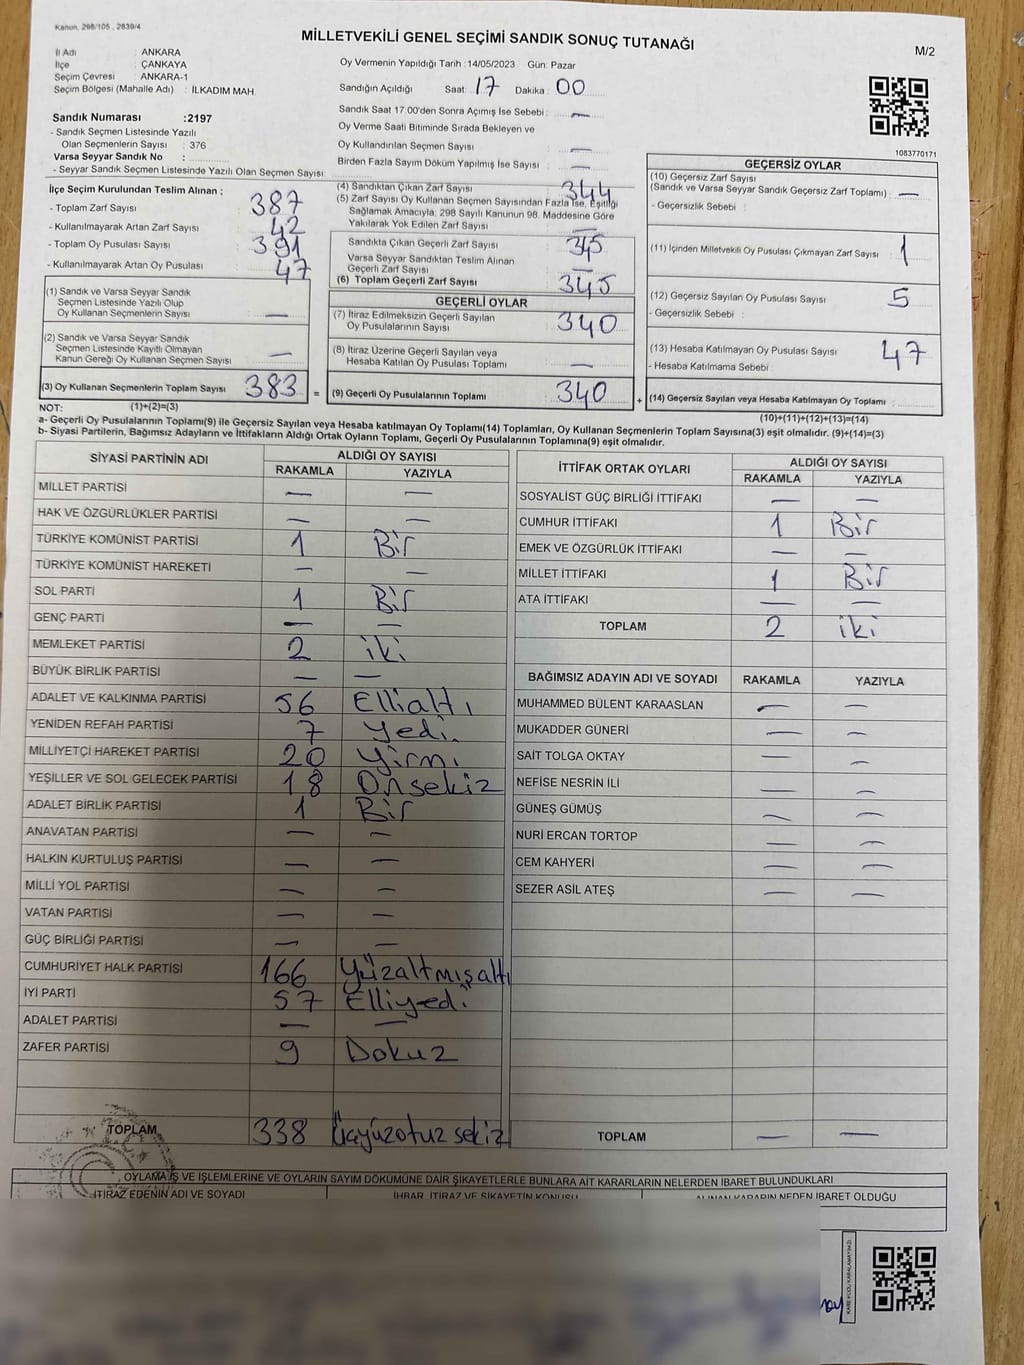 Kanun, 298/105 , 2839/4
MİLLETVEKİLİ GENEL SEÇİMİ SANDIK SONUÇ TUTANAĞI
M/2
İl Adı : ANKARA
İlçe : ÇANKAYA
Seçim Çevresi : ANKARA-1
Seçim Bölgesi (Mahalle Adı) : İLKADIM MAH.
Oy Vermenin Yapıldığı Tarih : 14/05/2023 Gün: Pazar
Sandığın Açıldığı Saat: 17 Dakika : 00
Sandık Saat 17:00'den Sonra Açımış İse Sebebi : —
Oy Verme Saati Bitiminde Sırada Bekleyen ve
Oy Kullandırılan Seçmen Sayısı : —
Birden Fazla Sayım Döküm Yapılmış İse Sayısı : —
Sandık Numarası :2197
- Sandık Seçmen Listesinde Yazılı
Olan Seçmenlerin Sayısı : 376
Varsa Seyyar Sandık No :
- Seyyar Sandık Seçmen Listesinde Yazılı Olan Seçmen Sayısı:
1083770171
İlçe Seçim Kurulundan Teslim Alınan ;
- Toplam Zarf Sayısı : 387
- Kullanılmayarak Artan Zarf Sayısı : 42
- Toplam Oy Pusulası Sayısı : 391
- Kullanılmayarak Artan Oy Pusulası : 47
(1) Sandık ve Varsa Seyyar Sandık
Seçmen Listesinde Yazılı Olup
Oy Kullanan Seçmenlerin Sayısı : —
(2) Sandık ve Varsa Seyyar Sandık
Seçmen Listesinde Kayıtlı Olmayan
Kanun Gereği Oy Kullanan Seçmen Sayısı : —
(3) Oy Kullanan Seçmenlerin Toplam Sayısı : 383 =
(4) Sandıktan Çıkan Zarf Sayısı : 344
(5) Zarf Sayısı Oy Kullanan Seçmen Sayısından Fazla İse, Eşitliği
Sağlamak Amacıyla, 298 Sayılı Kanunun 98. Maddesine Göre
Yakılarak Yok Edilen Zarf Sayısı : —
Sandıkta Çıkan Geçerli Zarf Sayısı : 345
Varsa Seyyar Sandıktan Teslim Alınan
Geçerli Zarf Sayısı : —
(6) Toplam Geçerli Zarf Sayısı : 345
GEÇERLİ OYLAR
(7) İtiraz Edilmeksizin Geçerli Sayılan
Oy Pusulalarının Sayısı : 340
(8) İtiraz Üzerine Geçerli Sayılan veya
Hesaba Katılan Oy Pusulası Toplamı : —
(9) Geçerli Oy Pusulalarının Toplamı : 340 +
GEÇERSİZ OYLAR
(10) Geçersiz Zarf Sayısı
(Sandık ve Varsa Seyyar Sandık Geçersiz Zarf Toplamı) : —
- Geçersizlik Sebebi :
(11) İçinden Milletvekili Oy Pusulası Çıkmayan Zarf Sayısı : 1
(12) Geçersiz Sayılan Oy Pusulası Sayısı : 5
- Geçersizlik Sebebi :
(13) Hesaba Katılmayan Oy Pusulası Sayısı : 47
- Hesaba Katılmama Sebebi :
(14) Geçersiz Sayılan veya Hesaba Katılmayan Oy Toplamı :
NOT: (1)+(2)=(3) (10)+(11)+(12)+(13)=(14)
a- Geçerli Oy Pusulalarının Toplamı(9) ile Geçersiz Sayılan veya Hesaba katılmayan Oy Toplamı(14) Toplamları, Oy Kullanan Seçmenlerin Toplam Sayısına(3) eşit olmalıdır. (9)+(14)=(3)
b- Siyasi Partilerin, Bağımsız Adayların ve İttifakların Aldığı Ortak Oyların Toplamı, Geçerli Oy Pusulalarının Toplamına(9) eşit olmalıdır.
SİYASİ PARTİNİN ADI ALDIĞI OY SAYISI
RAKAMLA YAZIYLA
MİLLET PARTİSİ — —
HAK VE ÖZGÜRLÜKLER PARTİSİ — —
TÜRKİYE KOMÜNİST PARTİSİ 1 Bir
TÜRKİYE KOMÜNİST HAREKETİ — —
SOL PARTİ 1 Bir
GENÇ PARTİ — —
MEMLEKET PARTİSİ 2 iki
BÜYÜK BİRLİK PARTİSİ — —
ADALET VE KALKINMA PARTİSİ 56 Ellialtı
YENİDEN REFAH PARTİSİ 7 Yedi
MİLLİYETÇİ HAREKET PARTİSİ 20 Yirmi
YEŞİLLER VE SOL GELECEK PARTİSİ 18 Onsekiz
ADALET BİRLİK PARTİSİ 1 Bir
ANAVATAN PARTİSİ — —
HALKIN KURTULUŞ PARTİSİ — —
MİLLİ YOL PARTİSİ — —
VATAN PARTİSİ — —
GÜÇ BİRLİĞİ PARTİSİ — —
CUMHURİYET HALK PARTİSİ 166 Yüzaltmışaltı
İYİ PARTİ 57 Elliyedi
ADALET PARTİSİ — —
ZAFER PARTİSİ 9 Dokuz
TOPLAM 338 Üçyüzotuz sekiz
İTTİFAK ORTAK OYLARI ALDIĞI OY SAYISI
RAKAMLA YAZIYLA
SOSYALİST GÜÇ BİRLİĞİ İTTİFAKI — —
CUMHUR İTTİFAKI 1 Bir
EMEK VE ÖZGÜRLÜK İTTİFAKI — —
MİLLET İTTİFAKI 1 Bir
ATA İTTİFAKI — —
TOPLAM 2 iki
BAĞIMSIZ ADAYIN ADI VE SOYADI RAKAMLA YAZIYLA
MUHAMMED BÜLENT KARAASLAN — —
MUKADDER GÜNERİ — —
SAİT TOLGA OKTAY — —
NEFİSE NESRİN İLİ — —
GÜNEŞ GÜMÜŞ — —
NURİ ERCAN TORTOP — —
CEM KAHYERİ — —
SEZER ASİL ATEŞ — —
TOPLAM — —
OYLAMA İŞ VE İŞLEMLERİNE VE OYLARIN SAYIM DÖKÜMÜNE DAİR ŞİKAYETLERLE BUNLARA AİT KARARLARIN NELERDEN İBARET BULUNDUKLARI
İTİRAZ EDENİN ADI VE SOYADI İHBAR, İTİRAZ VE ŞİKAYETİN KONUSU ALINAN KARARIN NEDEN İBARET OLDUĞU
KARE KODU KARALAMAYINIZ!